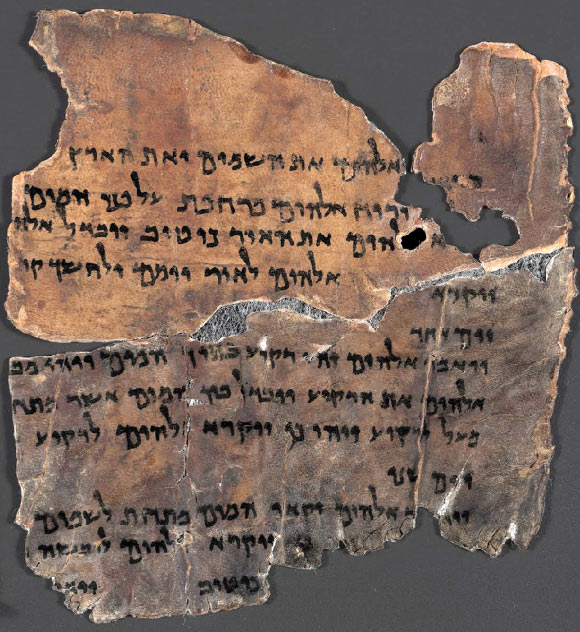 אלהים את השמים ואת הארץ
ורוח אלהים מרחפת על פני המים
אלהים את האור כי טוב ויבדל אלה
אלהים לאור יומם ולחשך קר
ויקרא
יום אחד
ויאמר אלהים יהי רקיע בתוך המים ויהי מב
אלהים את הרקיע ויבדל בין המים אשר מתחת
מעל לרקיע ויהי כן ויקרא אלהים לרקיע
יום שני
אלהים יקאו המים מתחת לשמים
ויקרא אלהים ליבשה
כי טוב